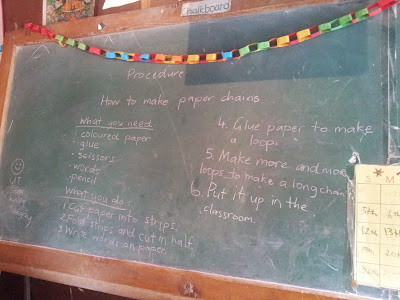 Chalkboard
Procedure
How to make paper chains
What you need
· coloured paper
· glue
· scissors
· words
· pencil
What you do
1. Cut paper into strips.
2. Fold strips and cut in half
3. Write words on paper.
4. Glue paper to make
a loop.
5. Make more and more
loops to make a long chain
6. Put it up in the
classroom.
US
M
5th
12th
13th